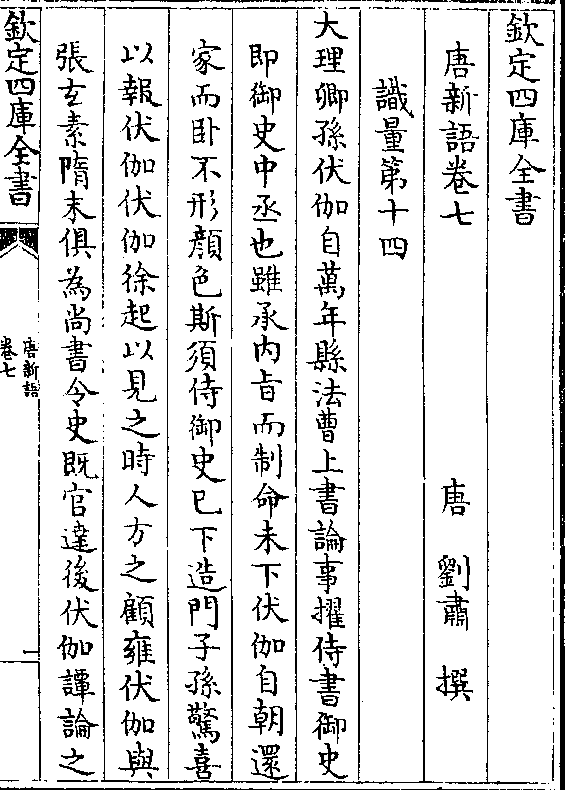 欽定四庫全書
唐新語卷七
唐 劉肅 撰
識量第十四
大理卿孫伏伽自萬年縣法曹上書論事擢侍書御史
即御史中丞也雖承内旨而制命未下伏伽自朝還
家而卧不形顔色斯須侍御史已下造門子孫驚喜
以報伏伽伏伽徐起以見之時人方之顧雍伏伽與
張玄素隋末俱為尚書令史既官達後伏伽譚論之
欽定四庫全書
唐新語
卷七
一